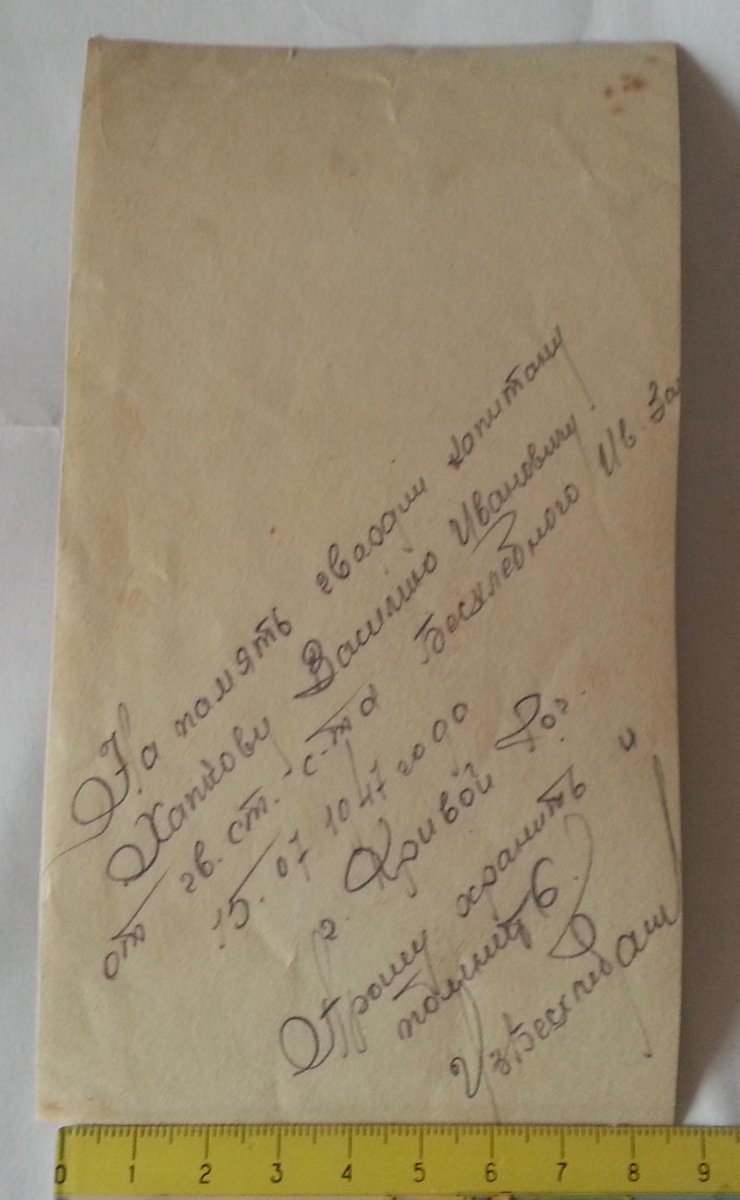 На память гвардии капитану
Василию Ивановичу
от гв. ст. с-та Бесхлебного Ив. За
15.07 1947 года
г. Кривой Рог.
Прошу хранить и
помнить.
0 1 2 3 4 5 6 7 8 9